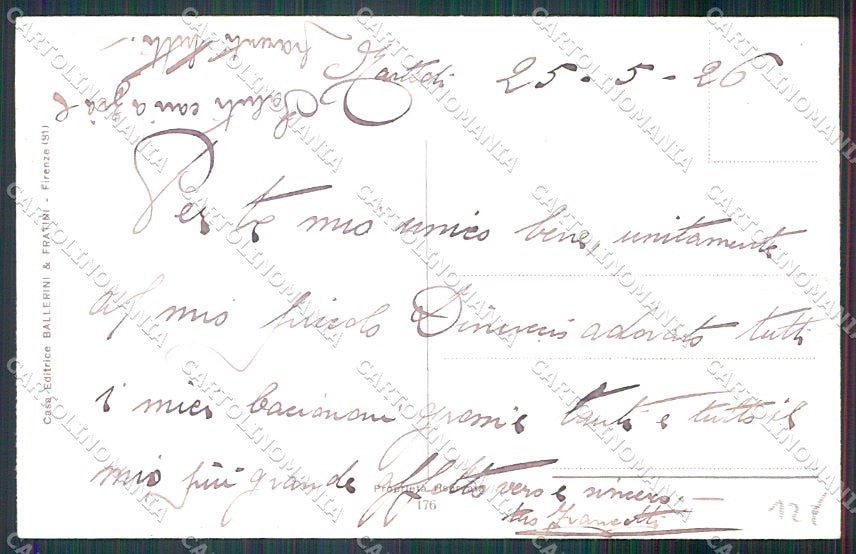 Martedì 25-5-26
Per te mio unico bene, unitamente
al mio piccolo adorato tutti
i miei bacioni grandi e tanti e tutto il
mio più grande affetto vero e sincero. —
tuo
Saluti cari a
parenti tutti.
Casa Editrice BALLERINI & FRATINI - Firenze (91)
Proprietà Riservata
176
CARTOLINOMANIA